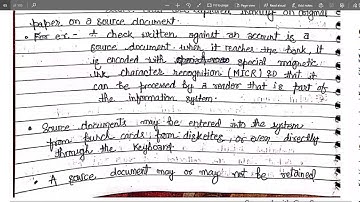 paper on a source document.
• For ex:- A check written against an account is a
source document when it reaches the bank, it
is encoded with special magnetic
ink character recognition (MICR) so that it
can be processed by a reader that is part of
the information system.
• Source documents may be entered into the system
from punch cards, from diskettes, or even directly
through the keyboard.
• A source document may or may not be retained